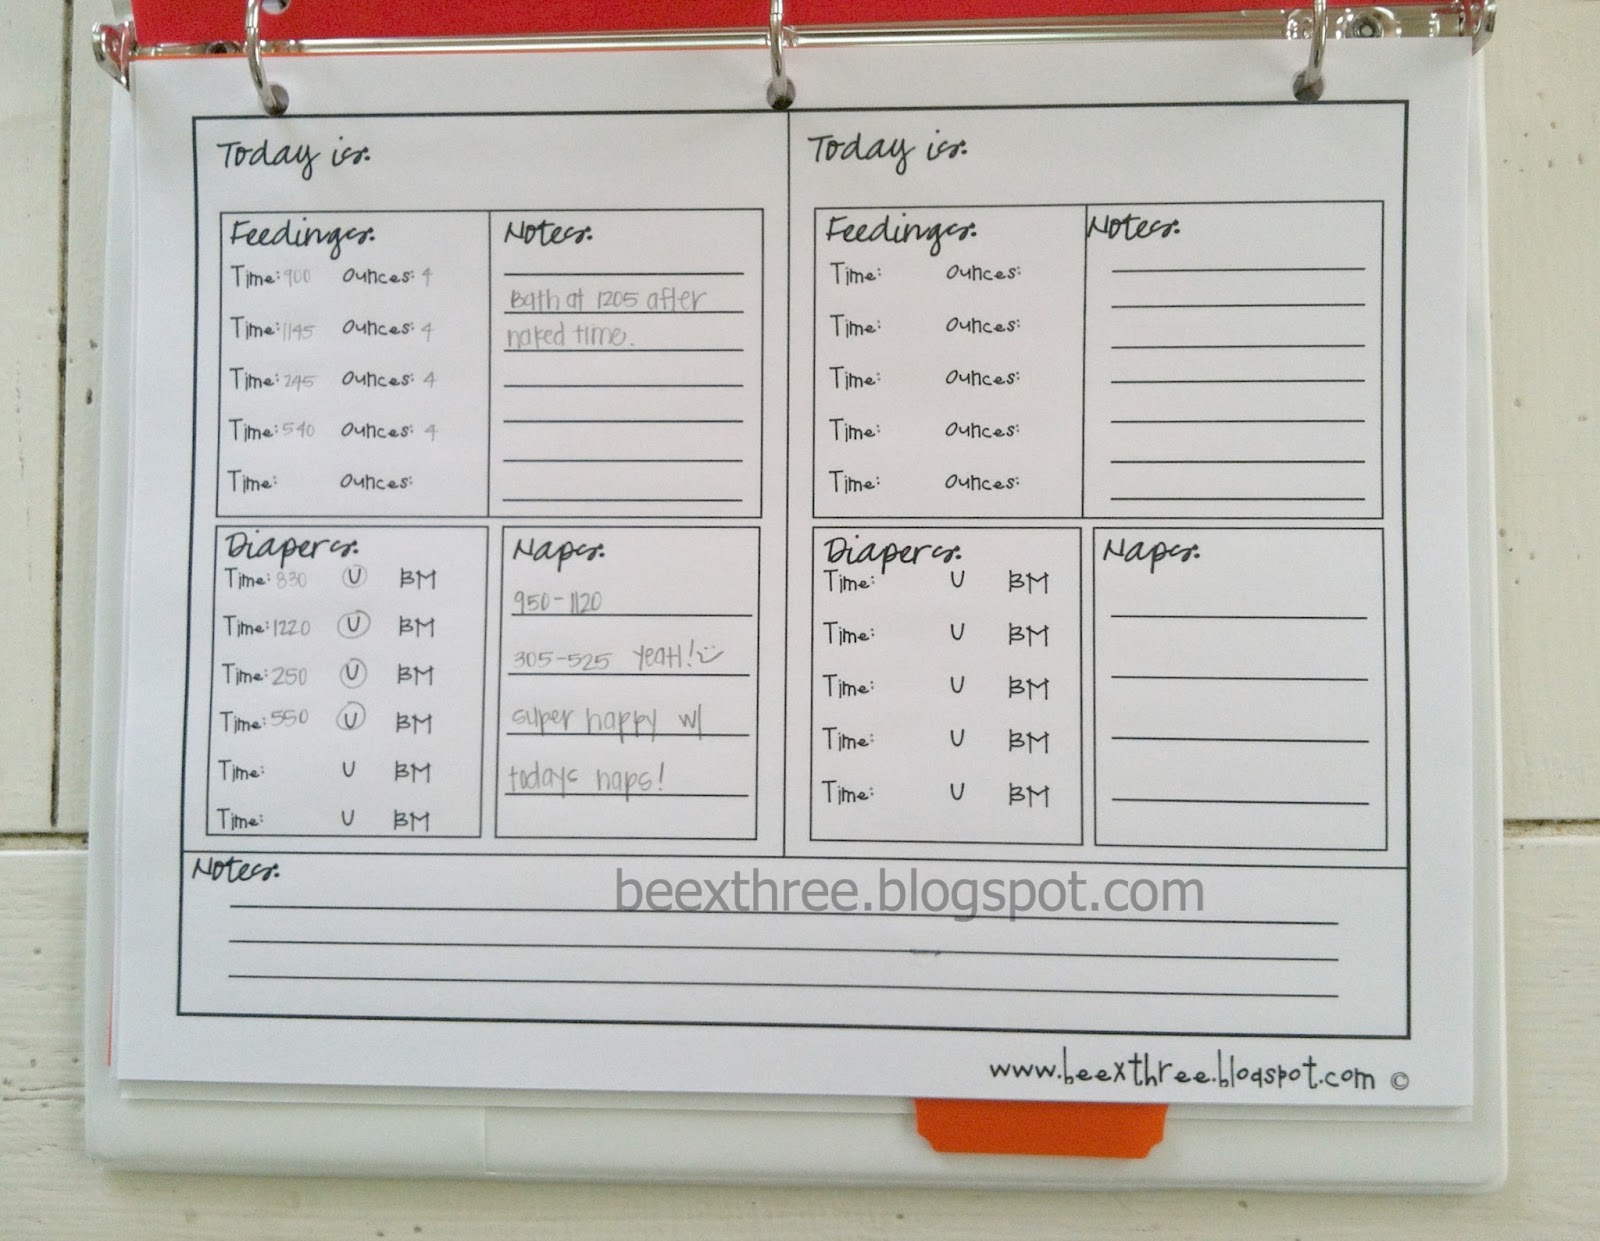 Today is:
Feedings:
Time: 900 Ounces: 4
Time: 1145 Ounces: 4
Time: 245 Ounces: 4
Time: 540 Ounces: 4
Time: Ounces:
Notes:
Bath at 1205 after
naked time.
Diapers:
Time: 830 U BM
Time: 1220 U BM
Time: 250 U BM
Time: 550 U BM
Time: U BM
Time: U BM
Naps:
950-1120
305-525 YEAH!
super happy w/
todays naps!
Today is:
Feedings:
Time: Ounces:
Time: Ounces:
Time: Ounces:
Time: Ounces:
Time: Ounces:
Notes:
Diapers:
Time: U BM
Time: U BM
Time: U BM
Time: U BM
Time: U BM
Naps:
Notes:
beexthree.blogspot.com
www.beexthree.blogspot.com ©